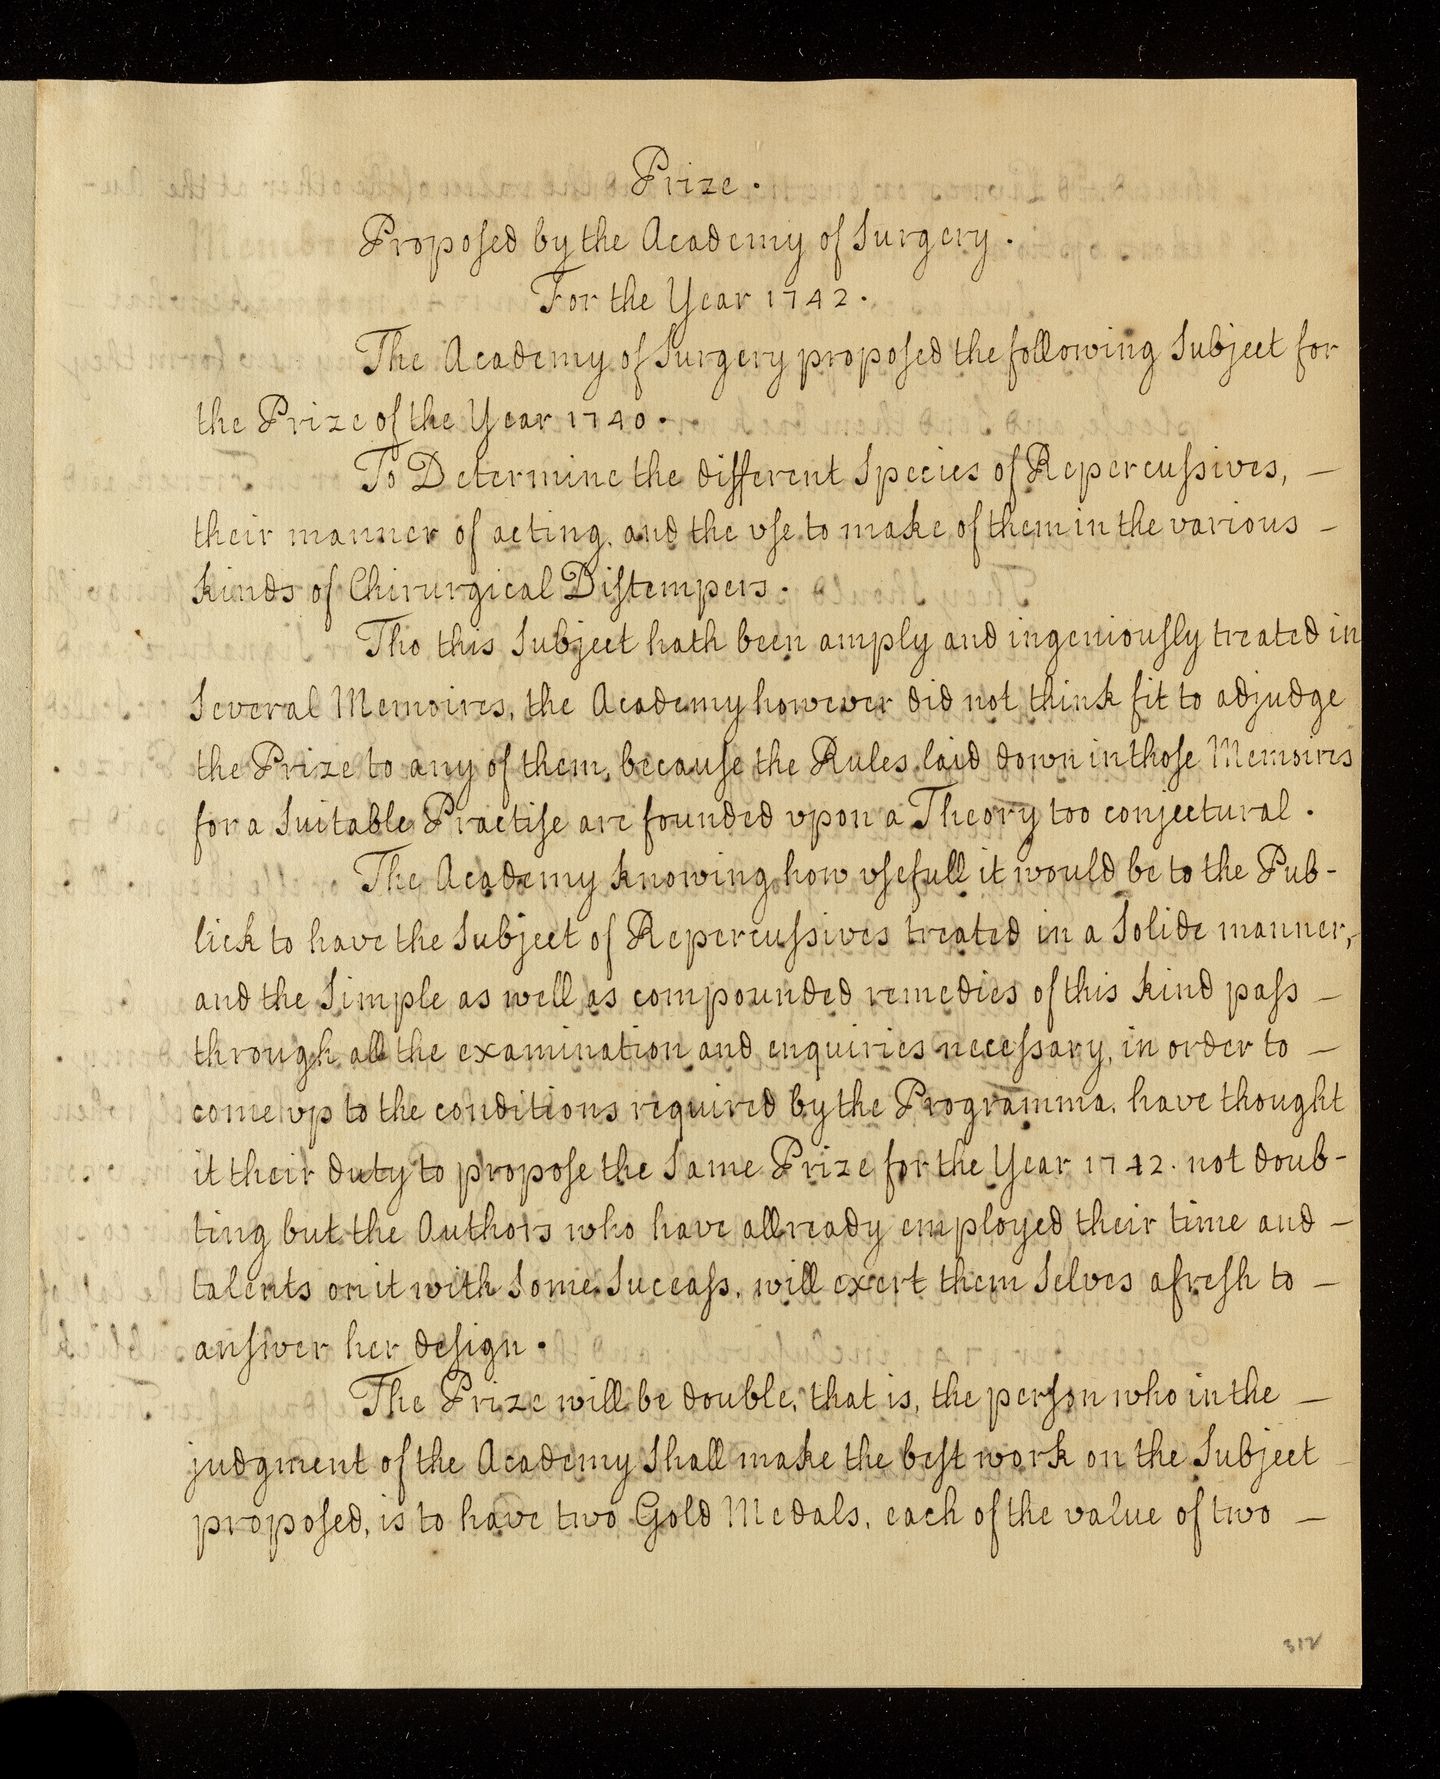 Prize.
Proposed by the Academy of Surgery.
For the Year 1742.
The Academy of Surgery proposed the following Subject for
the Prize of the Year 1740.
To Determine the different Species of Repercussives, —
their manner of acting, and the vse to make of them in the various —
kinds of Chirurgical Distempers.
Tho this Subject hath been amply and ingeniously treated in
Several Memoires, the Academy however did not think fit to adjudge
the Prize to any of them, because the Rules laid down in those Memoires
for a Suitable Practise are founded vpon a Theory too conjectural.
The Academy knowing how vsefull it would be to the Pub-
lick to have the Subject of Repercussives treated in a Solide manner,
and the Simple as well as compounded remedies of this kind pass —
through all the examination and enquiries necessary, in order to —
come vp to the conditions required by the Programma, have thought
it their duty to propose the Same Prize for the Year 1742. not doub-
ting but the Authors who have allready employed their time and —
talents on it with Some Succass, will exert them Selves afresh to —
answer her design.
The Prize will be double, that is, the person who in the —
judgment of the Academy Shall make the best work on the Subject —
proposed, is to have two Gold Medals, each of the value of two —
312